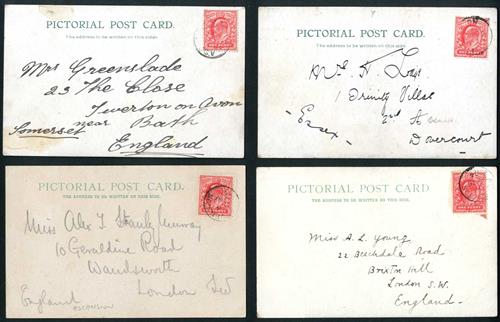 PICTORIAL POST CARD.
The address to be written on this side.
Mrs Greenslade
23 The Close
Twerton on Avon
near Bath
Somerset
England
PICTORIAL POST CARD.
The address to be written on this side.
1 Trinity Villas
Dovercourt
Essex
PICTORIAL POST CARD.
THE ADDRESS TO BE WRITTEN ON THIS SIDE.
Miss Alex
10 Geraldine Road
Wandsworth
London
England
ASCENSION
PICTORIAL POST CARD.
THE ADDRESS TO BE WRITTEN ON THIS SIDE.
Miss A. L. Young
22 Beechdale Road
Brixton Hill
London S.W.
England.